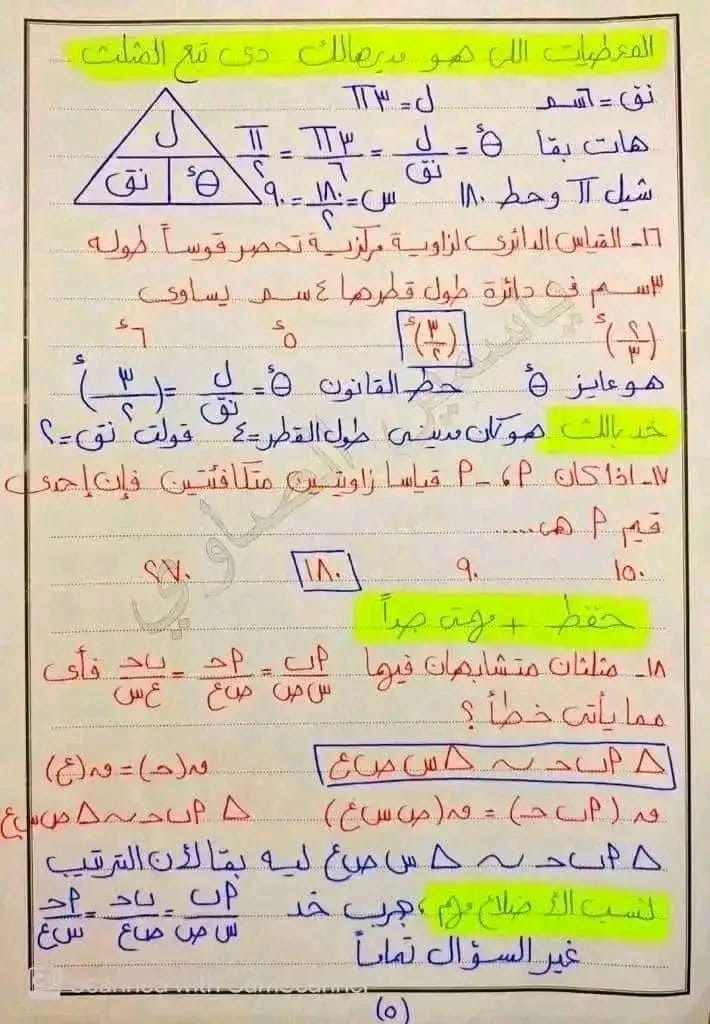 المعطيات اللى هو مديهالك دى تبع المثلث
نق = ٦سم ل = ٣π
هات بقا θء = ل/نق = ٣π/٦ = π/٢
شيل π وحط ١٨٠ س = ١٨٠/٢ = ٩٠
ل
نق θء
١٦- القياس الدائرى لزاوية مركزية تحصر قوساً طوله
٣سم فى دائرة طول قطرها ٤سم يساوى
(٢/٣)ء (٣/٢)ء ٥ء ٦ء
هو عايز θء حط القانون θء = ل/نق = (٣/٢)ء
خد بالك هو كان مدينى طول القطر = ٤ قولت نق = ٢
١٧- اذا كان ٢م، -٢م قياسا زاويتين متكافئتين فإن إحدى
قيم م هى......
١٥٠ ٩٠ ١٨٠ ٢٧٠
حفظ + مهمة جداً
١٨- مثلثان متشابهان فيها أب/س ص = أحـ/ص ع = ب حـ/ع س فأى
مما يأتى خطأ ؟
Δ أ ب حـ ~ Δ س ص ع ق(حـ) = ق(ع)
ق(أ ب حـ) = ق(ص س ع) Δ أ ب حـ ~ Δ ص س ع
Δ أ ب حـ ~ Δ س ص ع ليه بقا لأن الترتيب
لنسب الأضلاع مهم، جرب خد أب/س ص = ب حـ/ص ع = أحـ/س ع
غير السؤال تماماً
Scanned with CamScanner
(٥)